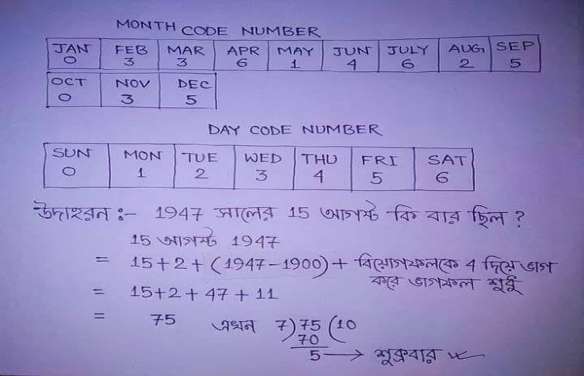 MONTH CODE NUMBER
JAN FEB MAR APR MAY JUN JULY AUG SEP
0 3 3 6 1 4 6 2 5
OCT NOV DEC
0 3 5
DAY CODE NUMBER
SUN MON TUE WED THU FRI SAT
0 1 2 3 4 5 6
উদাহরন :- 1947 সালের 15 আগস্ট কি বার ছিল ?
15 আগস্ট 1947
= 15+2+(1947-1900)+ বিয়োগফলকে 4 দিয়ে ভাগ
করে ভাগফল শুধু
= 15+2+47+11
= 75 এখন 7)75(10
70
5 → শুক্রবার